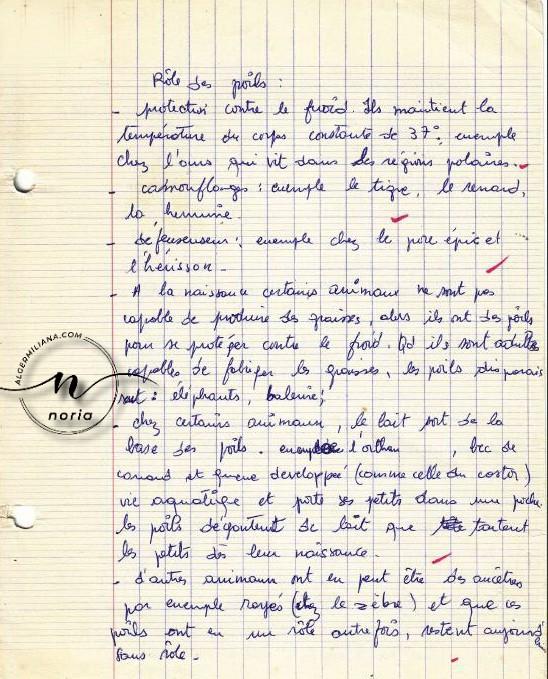 Rôle des poils :
- protection contre le froid. Ils maintient la
température du corps constante de 37°, exemple
chez l'ours qui vit dans des régions polaires.
- camouflanges : exemple le tigre, le renard,
la hermine.
- défenseuseur : exemple chez le porc épic et
l'hérisson -
- A la naissance certains animaux ne sont pas
capable de produire des graisses, alors ils ont des poils
pour se protéger contre le froid. Qd ils sont adultes
capables de fabriger les graisses, les poils disparais
sent : éléphants, baleine ;
- chez certains animaux, le lait sort de la
base des poils. exemple l'orthan , bec de
canard et queue developpée (comme celle du castor)
vie aquatique et porte ses petits dans une poche.
les poils dégoutent de lait que tartent
les petits dès leur naissance.
- d'autres animaux ont eu peut être des ancêtres
par exemple rayés (chez le zèbre) et que ces
poils ont eu un rôle autrefois, restent aujourd'
sans rôle -
ALGERMILIANA.COM
n
noria